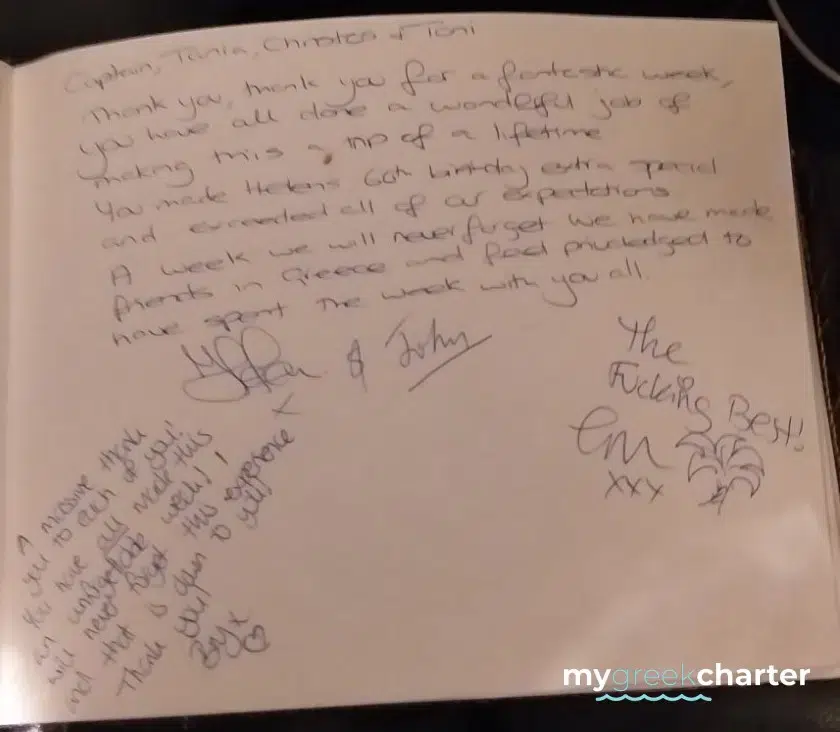 Captain, Tania, Christos + Toni
Thank you, thank you for a fantastic week,
you have all done a wonderful job of
making this a trip of a lifetime
You made Helens 60th birthday extra special
and exceeded all of our expectations
A week we will never forget we have made
friends in Greece and feel priviledged to
have spent the week with you all.
& John
x
The
Fucking Best!
Em
xxx
A massive thank
you to each of you!
You have all made this
an unforgettable week! I
will never forget this experience
and that is down to you!
Thank you!
x
mygreekcharter